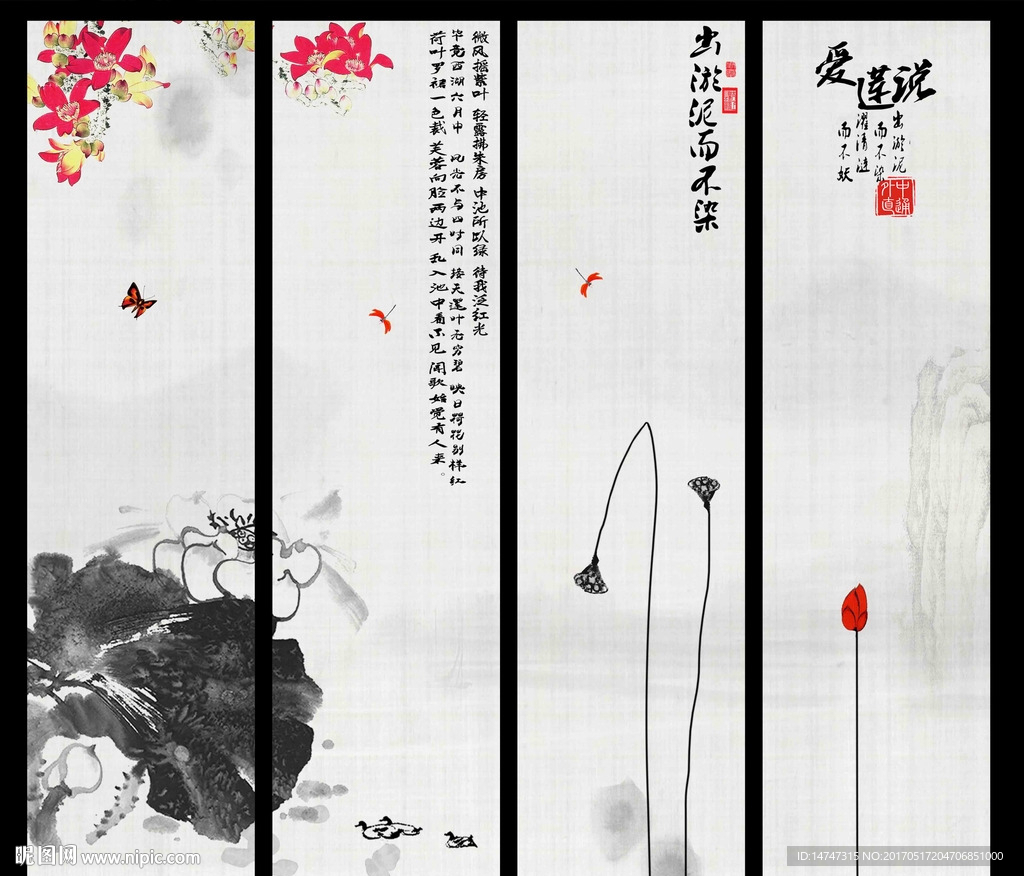 爱莲说
出淤泥
而不染
濯清涟
而不妖
中通
外直
出淤泥而不染
微风摇紫叶 轻露拂朱房 中池所以绿 待我泛红光
毕竟西湖六月中 风光不与四时同 接天莲叶无穷碧 映日荷花别样红
荷叶罗裙一色裁 芙蓉向脸两边开 乱入池中看不见 闻歌始觉有人来。
昵图网 www.nipic.com
ID:14747315 NO:20170517204706851000